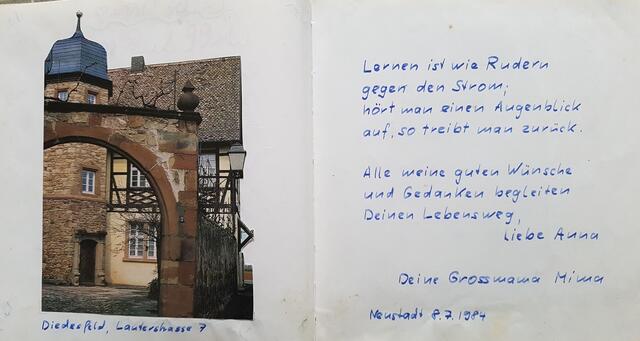 Diedesfeld, Lauterstrasse 7
Lernen ist wie Rudern
gegen den Strom;
hört man einen Augenblick
auf, so treibt man zurück.
Alle meine guten Wünsche
und Gedanken begleiten
Deinen Lebensweg,
liebe Anna
Deine Grossmama Mima
Neustadt 8.7.1984